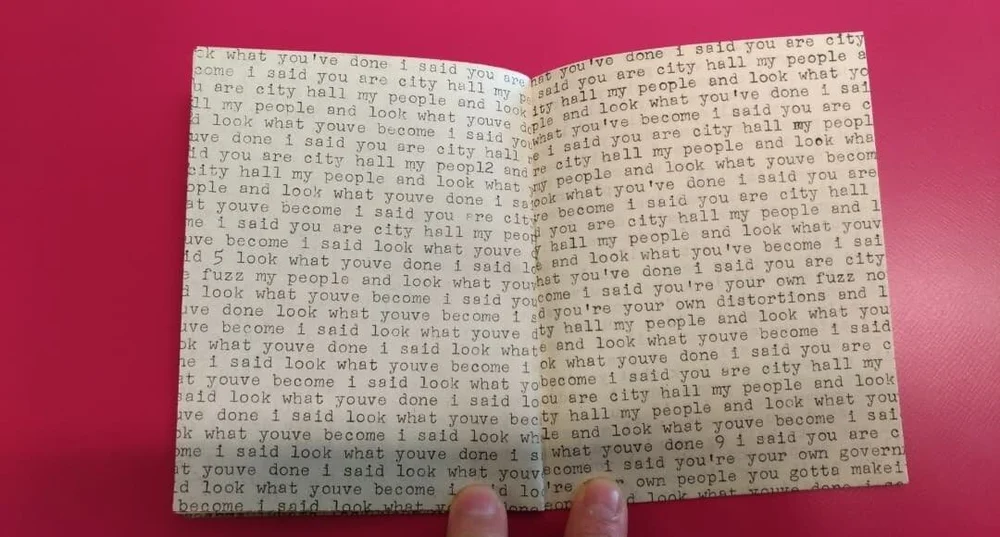 ok what you've done i said you are
come i said you are city hall my pe
u are city hall my people and look
ll my people and look what youve do
d look what youve become i said you
uve done i said you are city hall
id you are city hall my peopl2 and
city hall my people and look what
ople and look what youve done i sa
at youve become i said you are city
me i said you are city hall my peop
uve become i said look what youve
id 5 look what youve done i said lo
e fuzz my people and look what youv
d look what youve become i said you
uve done look what youve become i s
uve become i said look what youve d
ok what youve done i said look what
ne i said look what youve become i
at youve become i said look what yo
said look what youve done i said lo
uve done i said look what youve bec
ok what youve become i said look wh
ome i said look what youve done i s
at youve done i said look what youv
d look what youve become i said lo
become i said look what done
hat you've done i said you are city
said you are city hall my people a
ity hall my people and look what yo
ple and look what you've done i sai
what you've become i said you are c
e i said you are city hall my peopl
re city hall my people and look wha
my people and look what youve becom
ook what you've done i said you are
ve become i said you are city hall
d you are city hall my people and l
y hall my people and look what youv
e and look what you've become i sai
hat you've done i said you are city
come i said you're your own fuzz no
d you're your own distortions and l
ty hall my people and look what you
e and look what youve become i said
ok what youve done i said you are c
become i said you are city hall my
ou are city hall my people and look
ty hall my people and look what you
le and look what youve become i sai
what youve done 9 i said you are c
ecome i said you're your own govern
're your own people you gotta makei
look what youve done i